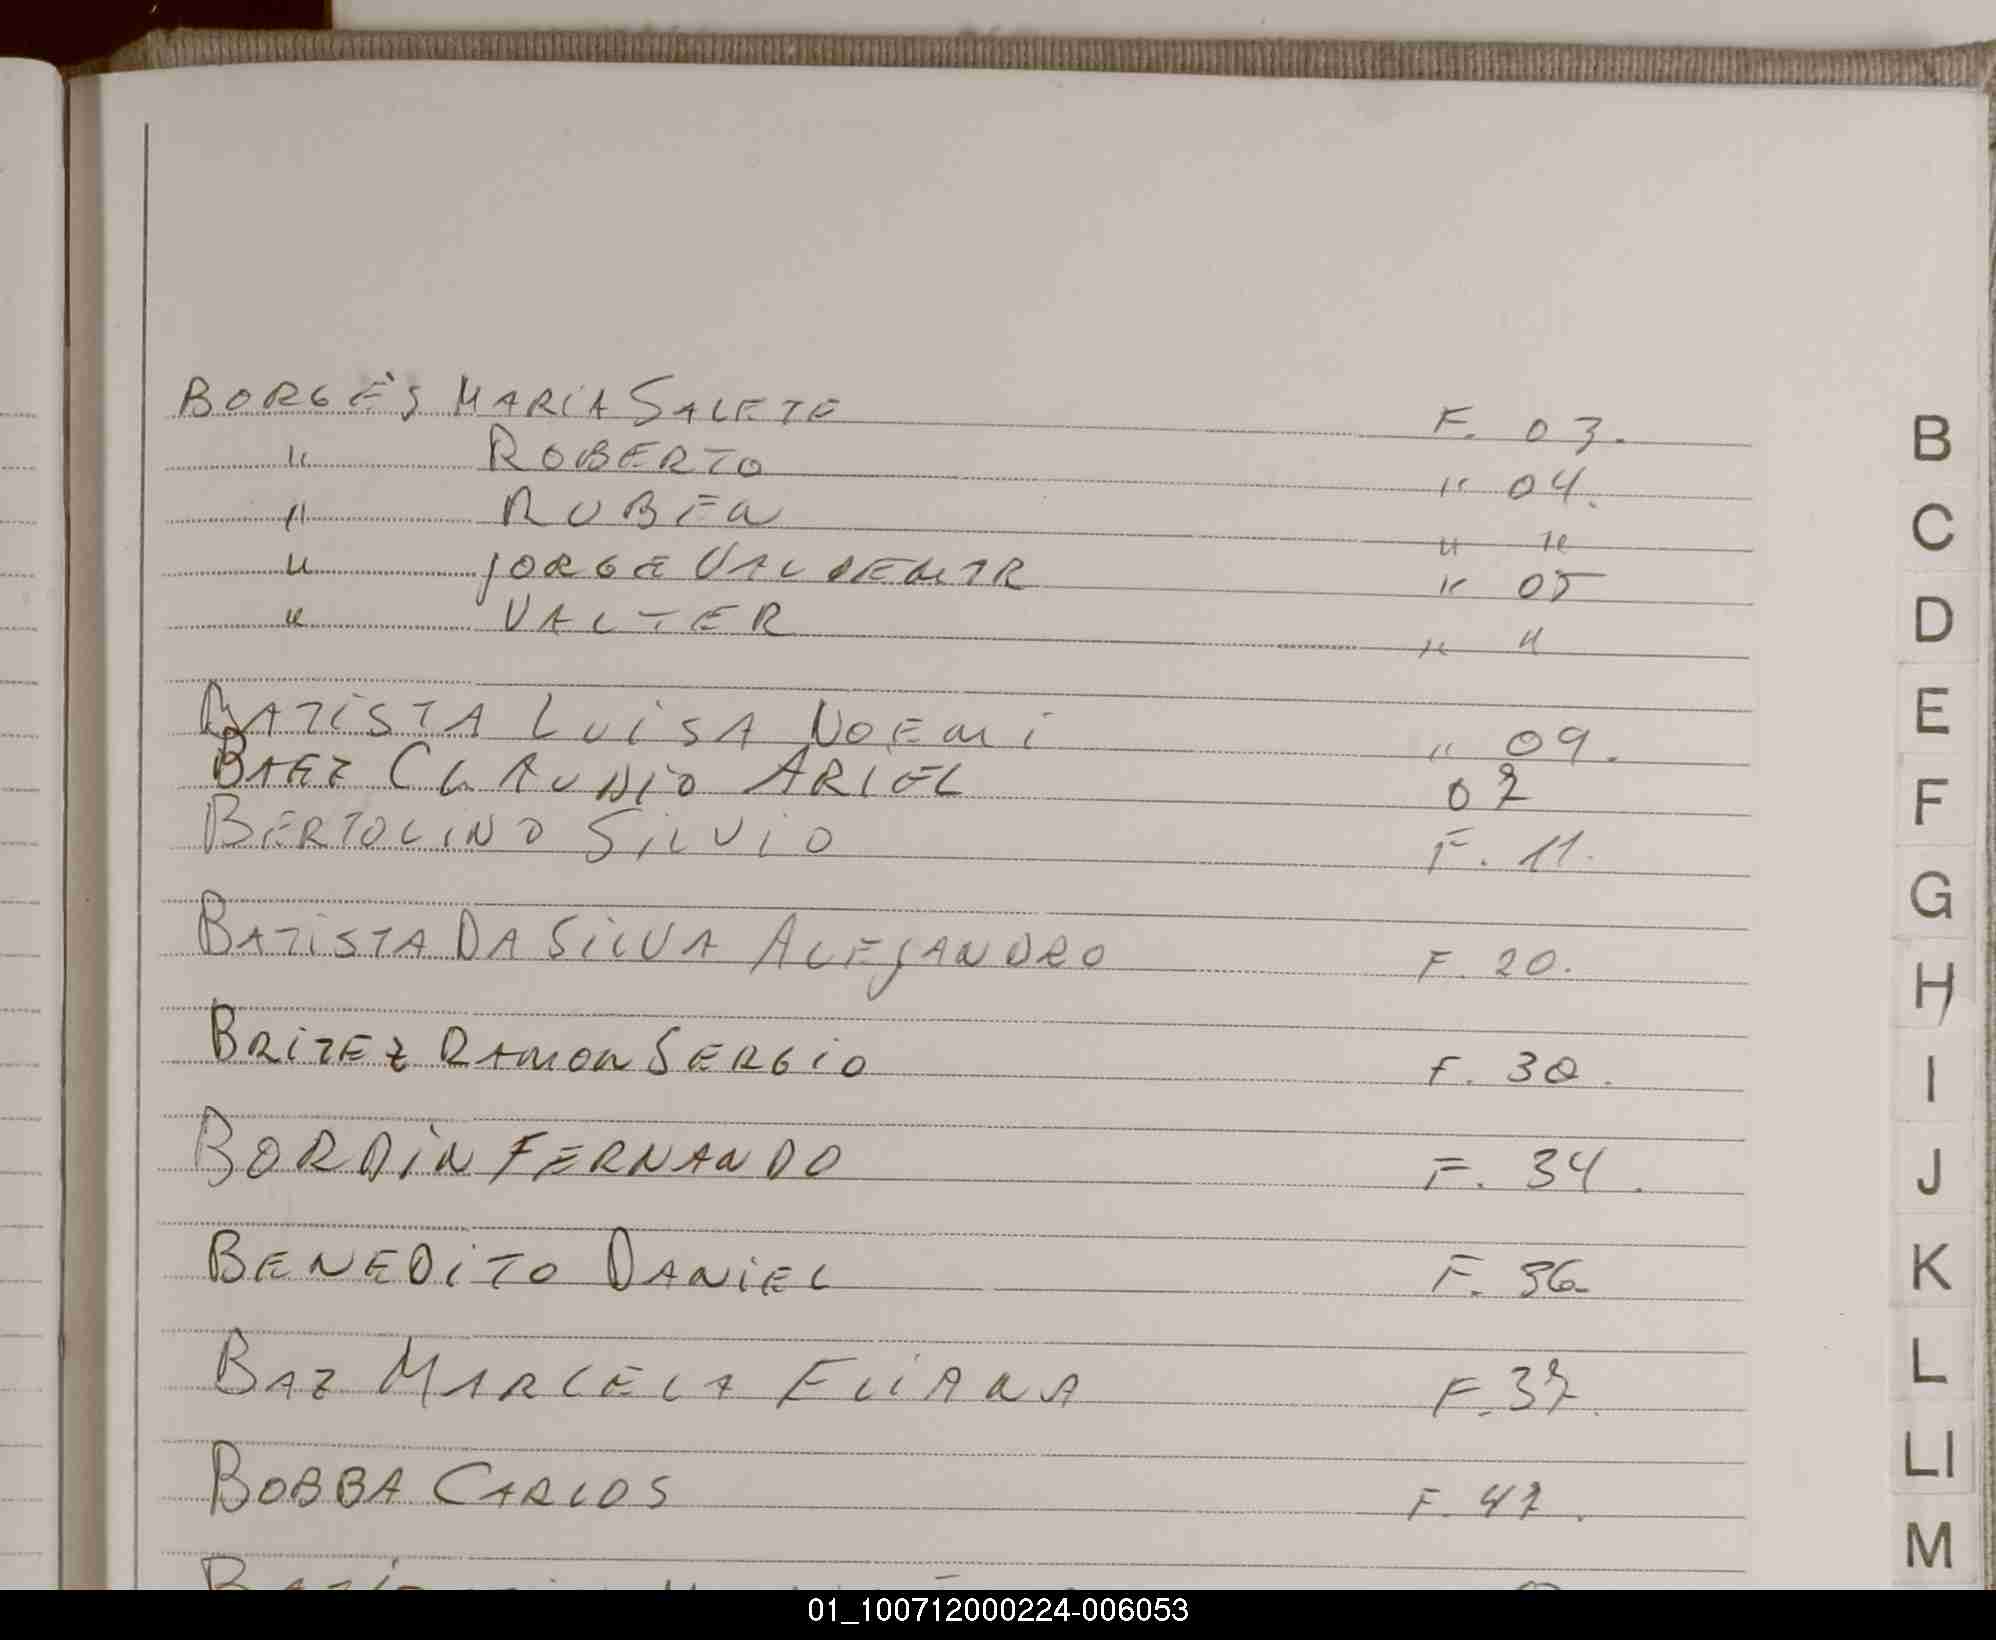 BORGES MARIA SALETE F. 03.
" ROBERTO " 04.
" RUBEN " "
" JORGE VALDEMAR " 05
" VALTER " "
BATISTA LUISA NOEMI " 09.
BAEZ CLAUDIO ARIEL 07
BERTOLINO SILVIO F. 11.
BATISTA DA SILVA ALEJANDRO F. 20.
BRITEZ RAMON SERGIO F. 30.
BORDIN FERNANDO F. 34.
BENEDITO DANIEL F. 36.
BAZ MARCELA ELIANA F. 37.
BOBBA CARLOS F. 47.
B
C
D
E
F
G
H
I
J
K
L
Ll
M
01_100712000224-006053